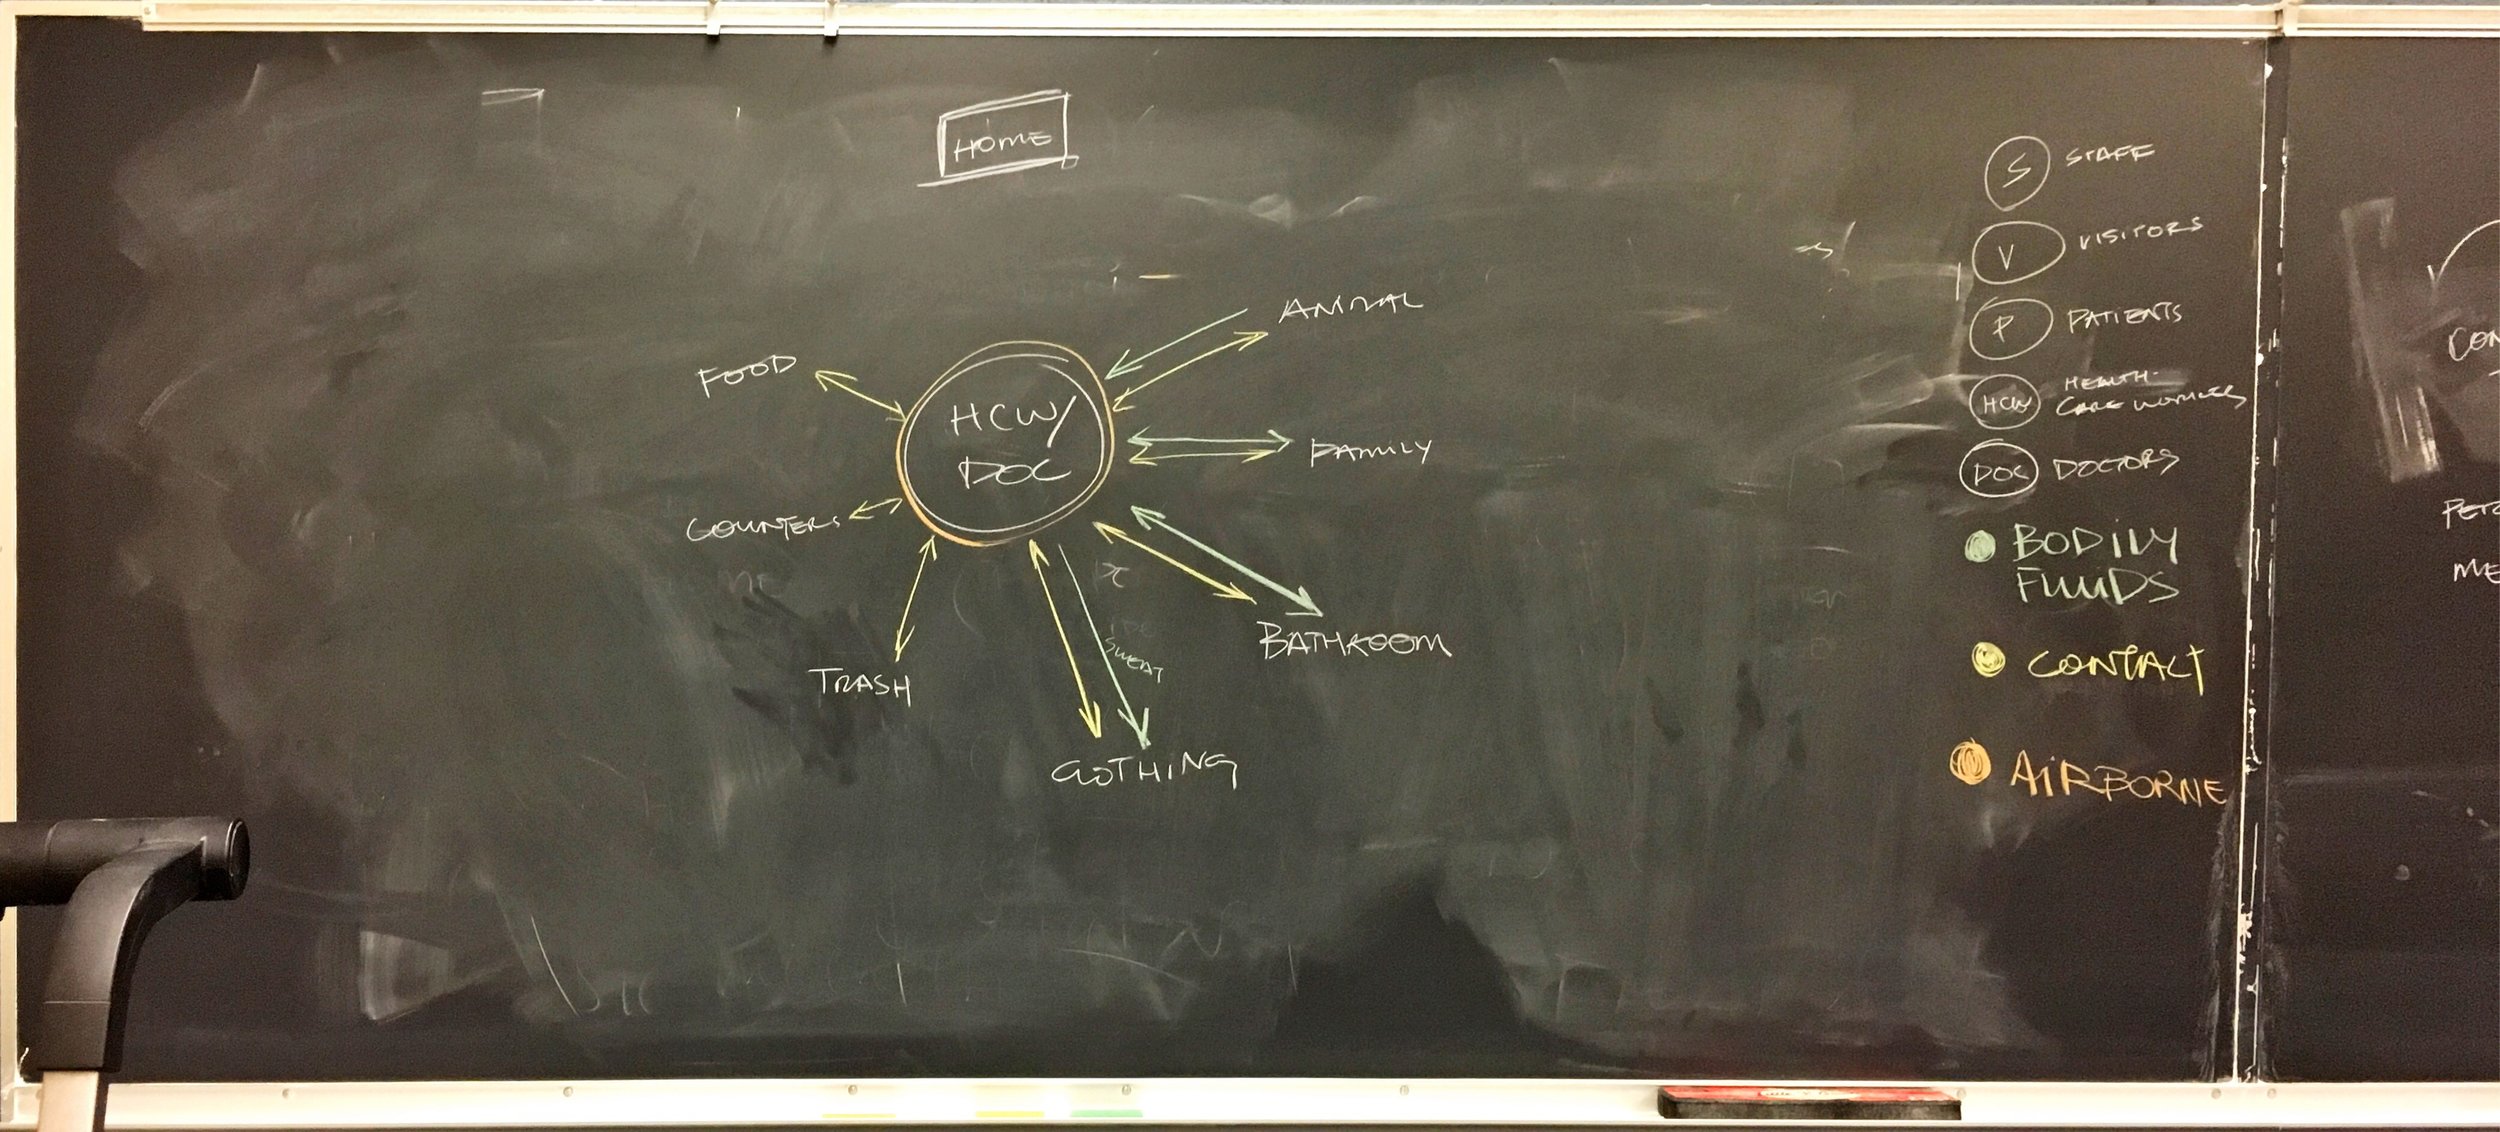 HOME
ANIMAL
FOOD
HCW/
DOC
FAMILY
COUNTERS
SWEAT
BATHROOM
TRASH
CLOTHING
S STAFF
V VISITORS
P PATIENTS
HCW HEALTH-
CARE WORKERS
DOC DOCTORS
BODILY
FLUIDS
CONTACT
AIRBORNE
CON
PETS
ME